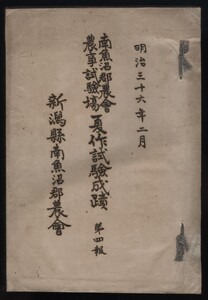 明治三十六年二月
南魚沼郡農會
農事試驗場
夏作試驗成蹟
第四報
新潟縣南魚沼郡農會